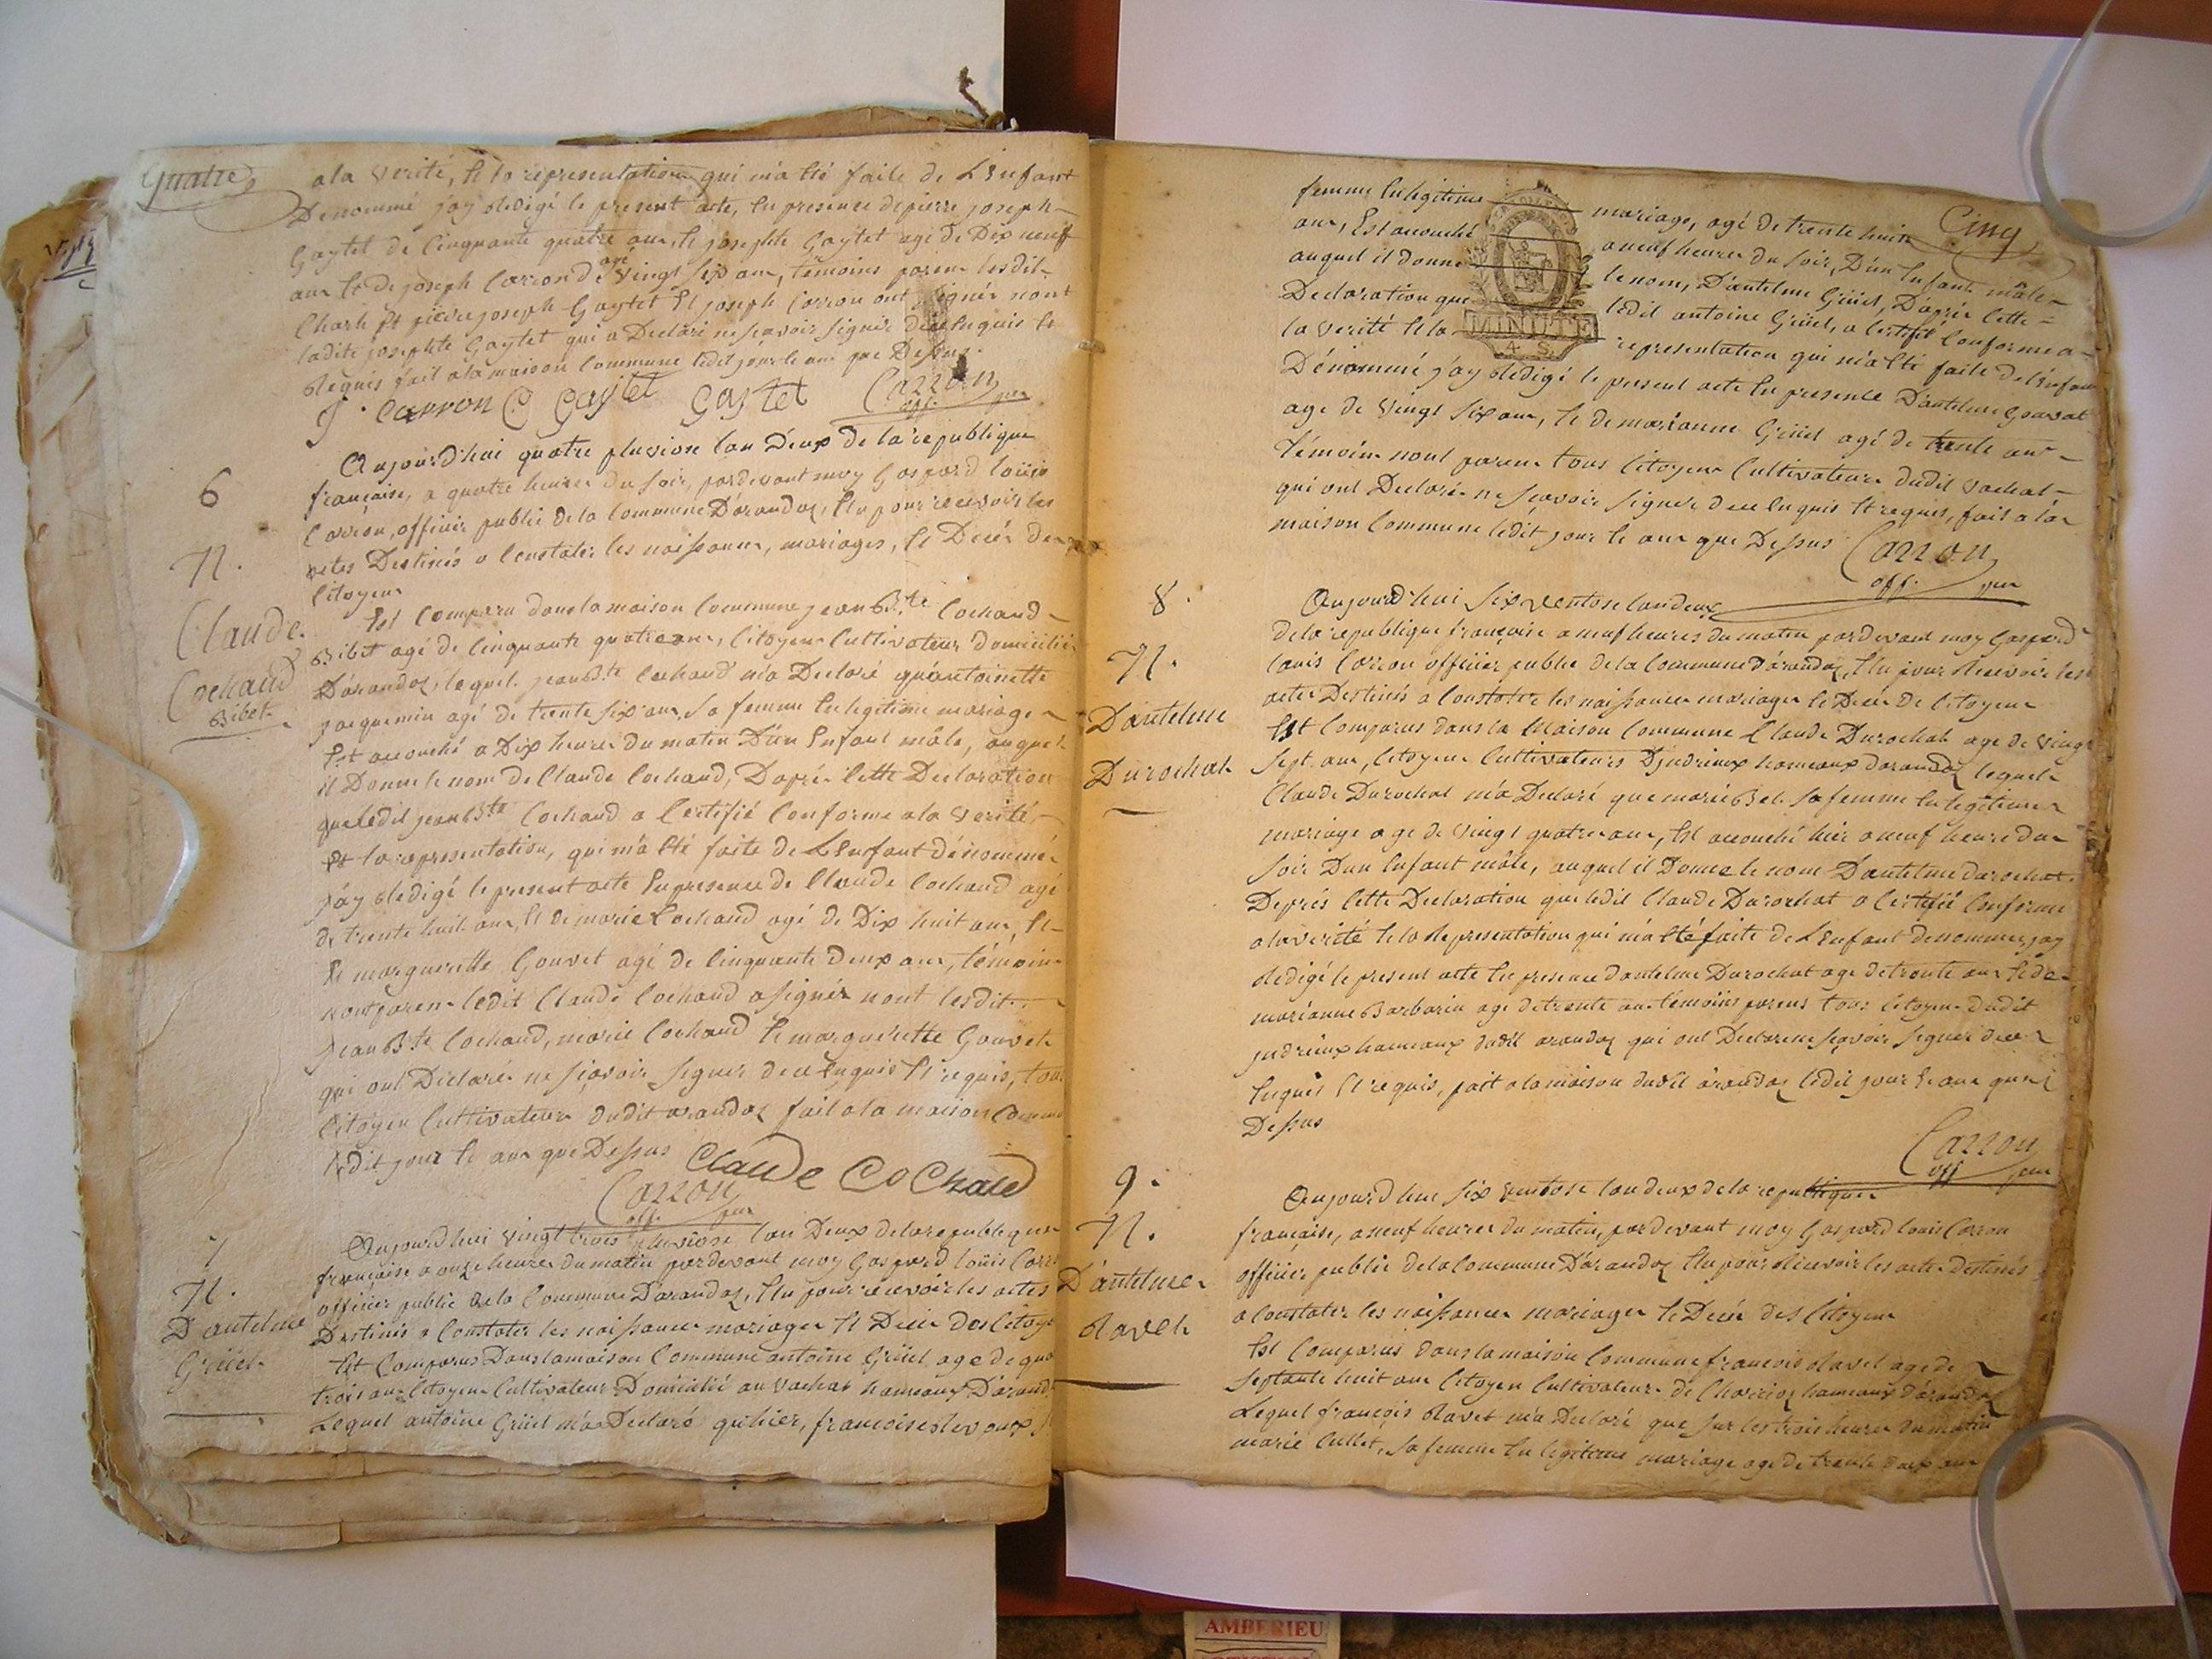 Quatre
a la verité, et la representation qui m'a été faite de L'Enfant
Denommé j'ay Redigé le present acte, En presence de pierre joseph
Gaytet de Cinquante quatre ans, et josephte Gaytet agé de Dix neuf
ans et de joseph Carron de agé vingt six ans, témoins parens lesdit
Charle et pierre joseph Gaytet et joseph Carron ont signés nont
ladite josephte Gaytet qui a Declaré ne sçavoir signer de ce Enquis et
Requis fait a la maison Commune ledit jour et ans que Dessus.
J. Carron C Gaytet Gaytet Carron
off. pu
6
N.
Claude
Cochaud
Bibet
Aujourd'hui quatre pluviose l'an Deux de la republique
française, a quatre heures du soir, pardevant moy Gaspard Loüis
Carron, officier public de la Commune D'arandaz, Elu pour recevoir les
actes Destinés a Constater les naissances, mariages, et Décés des
Citoyens
Est Comparu dans la maison Commune jean Bte Cochaud
Bibet agé de Cinquante quatre ans, Citoyens Cultivateurs domicilié
D'arandaz, lequel jean Bte Cochaud m'a Declaré qu'antoinette
jacquemin agé de trente six ans, sa femme En legitime mariage
Est accouché a Dix heures du matin D'un Enfant mâle, auquel
il Donne le nom de Claude Cochaud, D'aprés Cette Declaration
que ledit jean Bte Cochaud a Certifié Conforme a la verité,
Et la representation, qui m'a été faite de L'Enfant dénommé
j'ay Redigé le present acte En presence de Claude Cochaud agé
de trente huit ans, Et de marie Cochaud agé de Dix huit ans, Et
Et margueritte Gouvet agé de Cinquante Deux ans, témoins
nont parens ledit Claude Cochaud a signés nont lesdit
jean Bte Cochaud, marie Cochaud Et marguerette Gouvet
qui ont Déclaré ne sçavoir signer de ce Enquis Et requis, tous
Citoyens Cultivateurs dudit arandaz fait a la maison Commu
ledit jour et ans que Dessus Claude Cochaud
Carron
off. pu
7
N.
D'antelme
Grüel
Aujourd'hui vingt trois pluviose l'an Deux de la republique
française a onze heures du matin pardevant moy Gaspard Loüis Carr
officier public de la Commune D'arandaz, Elu pour recevoir les actes
Destinés a Constater les naissances mariages et Décés des Citoye
Est Comparus Dans la maison Commune antoine Grüel age de qua
trois ans Citoyens Cultivateur Domicilié au vachat hameaux D'arand
Lequel antoine Grüel m'a Declaré qu'hier, françoise
Cinq
femme En legitime mariage, agé de trente huit
ans, Est accouché a neuf heures du soir, D'un Enfant mâle
auquel il donne le nom, D'antelme Grüel, D'aprés Cette
Declaration que ledit antoine Grüel, a Certifié Conforme a
la verité Et la representation qui m'a été faite de l'Enfant
Dénommé j'ay Redigé le present acte En presence D'antelme Gouvat
age de vingt six ans, Et de marianne Grüel agé de trente ans
témoins nont parens tous Citoyens Cultivateurs dudit vachat
qui ont Declaré ne sçavoir signer de ce Enquis Et requis, fait a la
maison Commune ledit jour Et ans que Dessus Carron
off. pu
MINUTE
4 S.
8.
N.
D'antelme
Durochat
Aujourd'hui Six ventose l'an deux
de la republique française a neuf heures du matin pardevant moy Gaspard
Louis Carron officier public de la Commune D'arandaz, Elu pour Recevoir les
actes Destinés a Constater les naissances mariages et Décés de Citoyens
Est Comparus dans la Maison Commune Claude Durochat age de vingt
sept ans, Citoyens Cultivateurs D'judrieux hameaux darandaz lequel
Claude Durochat m'a Declaré que marie Bel sa femme En legitime
mariage age de vingt quatre ans, Est accouché hier a neuf heures du
soir D'un Enfant mâle, auquel il Donne le nom D'antelme durochat
D'aprés Cette Declaration que ledit Claude Durochat a Certifié Conforme
a la verité Et la Representation qui m'a été faite de L'Enfant denommé, j'ay
Redigé le present acte En presence D'antelme Durochat age de trente ans Et de
marianne Barbarin age de trente ans témoins parens tous Citoyens dudit
judrieux hameaux dudit arandaz qui ont Declaré ne sçavoir signer de ce
Enquis Et requis, fait a la maison dudit arandaz ledit jour Et ans que
Dessus
Carron
off pu
9.
N.
D'antelme
Ravet
Aujourd'hui six ventose l'an deux de la republique
française, a neuf heures du matin, pardevant moy Gaspard Louis Carron
officier public de la Commune D'arandaz Elu pour Recevoir les actes Destinés
a Constater les naissances mariages Et Décés des Citoyens
Est Comparus dans la maison Commune françois Ravet age de
septante huit ans Citoyen Cultivateurs de hameaux d'arandaz
Lequel françois Ravet m'a Declaré que sur les trois heures du matin
marie Cullet, sa femme En legitime mariage age de trente deux ans
AMBERIEU